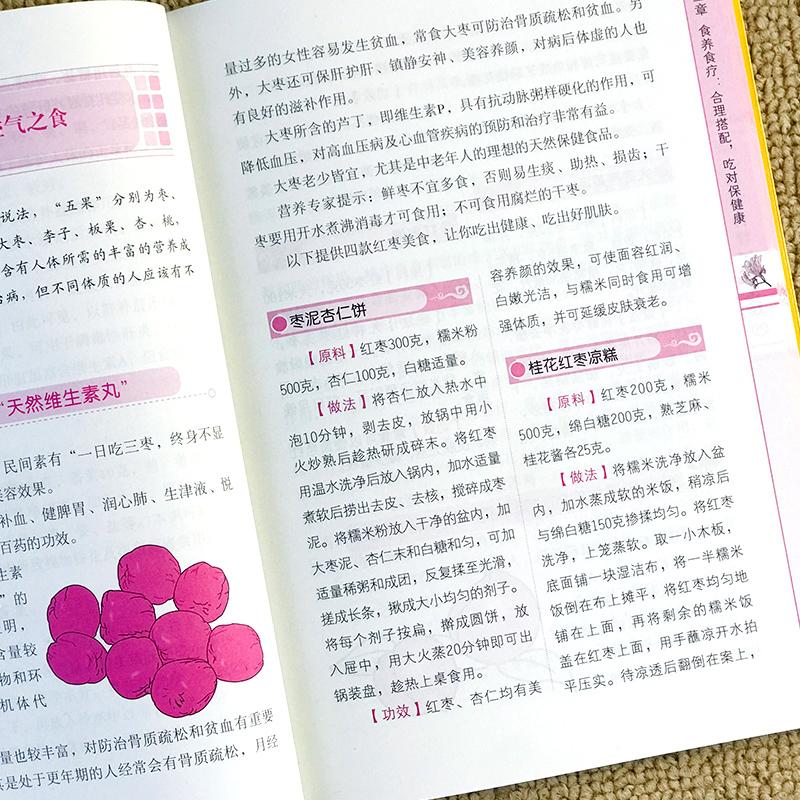 之食
说法，“五果”分别为枣、
大枣、李子、板栗、杏、桃，
含有人体所需的丰富的营养成
治病，但不同体质的人应该有不
“天然维生素丸”
民间素有“一日吃三枣，终身不显
美容效果。
补血、健脾胃、润心肺、生津液、悦
百药的功效。
生素
”的
明，
含量较
物和环
机体代
量也较丰富，对防治骨质疏松和贫血有重要
其是处于更年期的人经常会有骨质疏松，月经
量过多的女性容易发生贫血，常食大枣可防治骨质疏松和贫血。另
外，大枣还可保肝护肝、镇静安神、美容养颜，对病后体虚的人也
有良好的滋补作用。
大枣所含的芦丁，即维生素P，具有抗动脉粥样硬化的作用，可
降低血压，对高血压病及心血管疾病的预防和治疗非常有益。
大枣老少皆宜，尤其是中老年人的理想的天然保健食品。
营养专家提示：鲜枣不宜多食，否则易生痰、助热、损齿；干
枣要用开水煮沸消毒才可食用；不可食用腐烂的干枣。
以下提供四款红枣美食，让你吃出健康、吃出好肌肤。
枣泥杏仁饼
【原料】红枣300克，糯米粉
500克，杏仁100克，白糖适量。
【做法】将杏仁放入热水中
泡10分钟，剥去皮，放锅中用小
火炒熟后趁热研成碎末。将红枣
用温水洗净后放入锅内，加水适量
煮软后捞出去皮、去核，搅碎成枣
泥。将糯米粉放入干净的盆内，加
大枣泥、杏仁末和白糖和匀，可加
适量稀粥和成团，反复揉至光滑，
搓成长条，揪成大小均匀的剂子。
将每个剂子按扁，擀成圆饼，放
入屉中，用大火蒸20分钟即可出
锅装盘，趁热上桌食用。
【功效】红枣、杏仁均有美
容养颜的效果，可使面容红润、
白嫩光洁，与糯米同时食用可增
强体质，并可延缓皮肤衰老。
桂花红枣凉糕
【原料】红枣200克，糯米
500克，绵白糖200克，熟芝麻、
桂花酱各25克。
【做法】将糯米洗净放入盆
内，加水蒸成软的米饭，稍凉后
与绵白糖150克掺揉均匀。将红枣
洗净，上笼蒸软。取一小木板，
底面铺一块湿洁布，将一半糯米
饭倒在布上摊平，将红枣均匀地
铺在上面，再将剩余的糯米饭
盖在红枣上面，用手蘸凉开水拍
平压实。待凉透后翻倒在案上，
章 食养食疗：合理搭配，吃对保健康